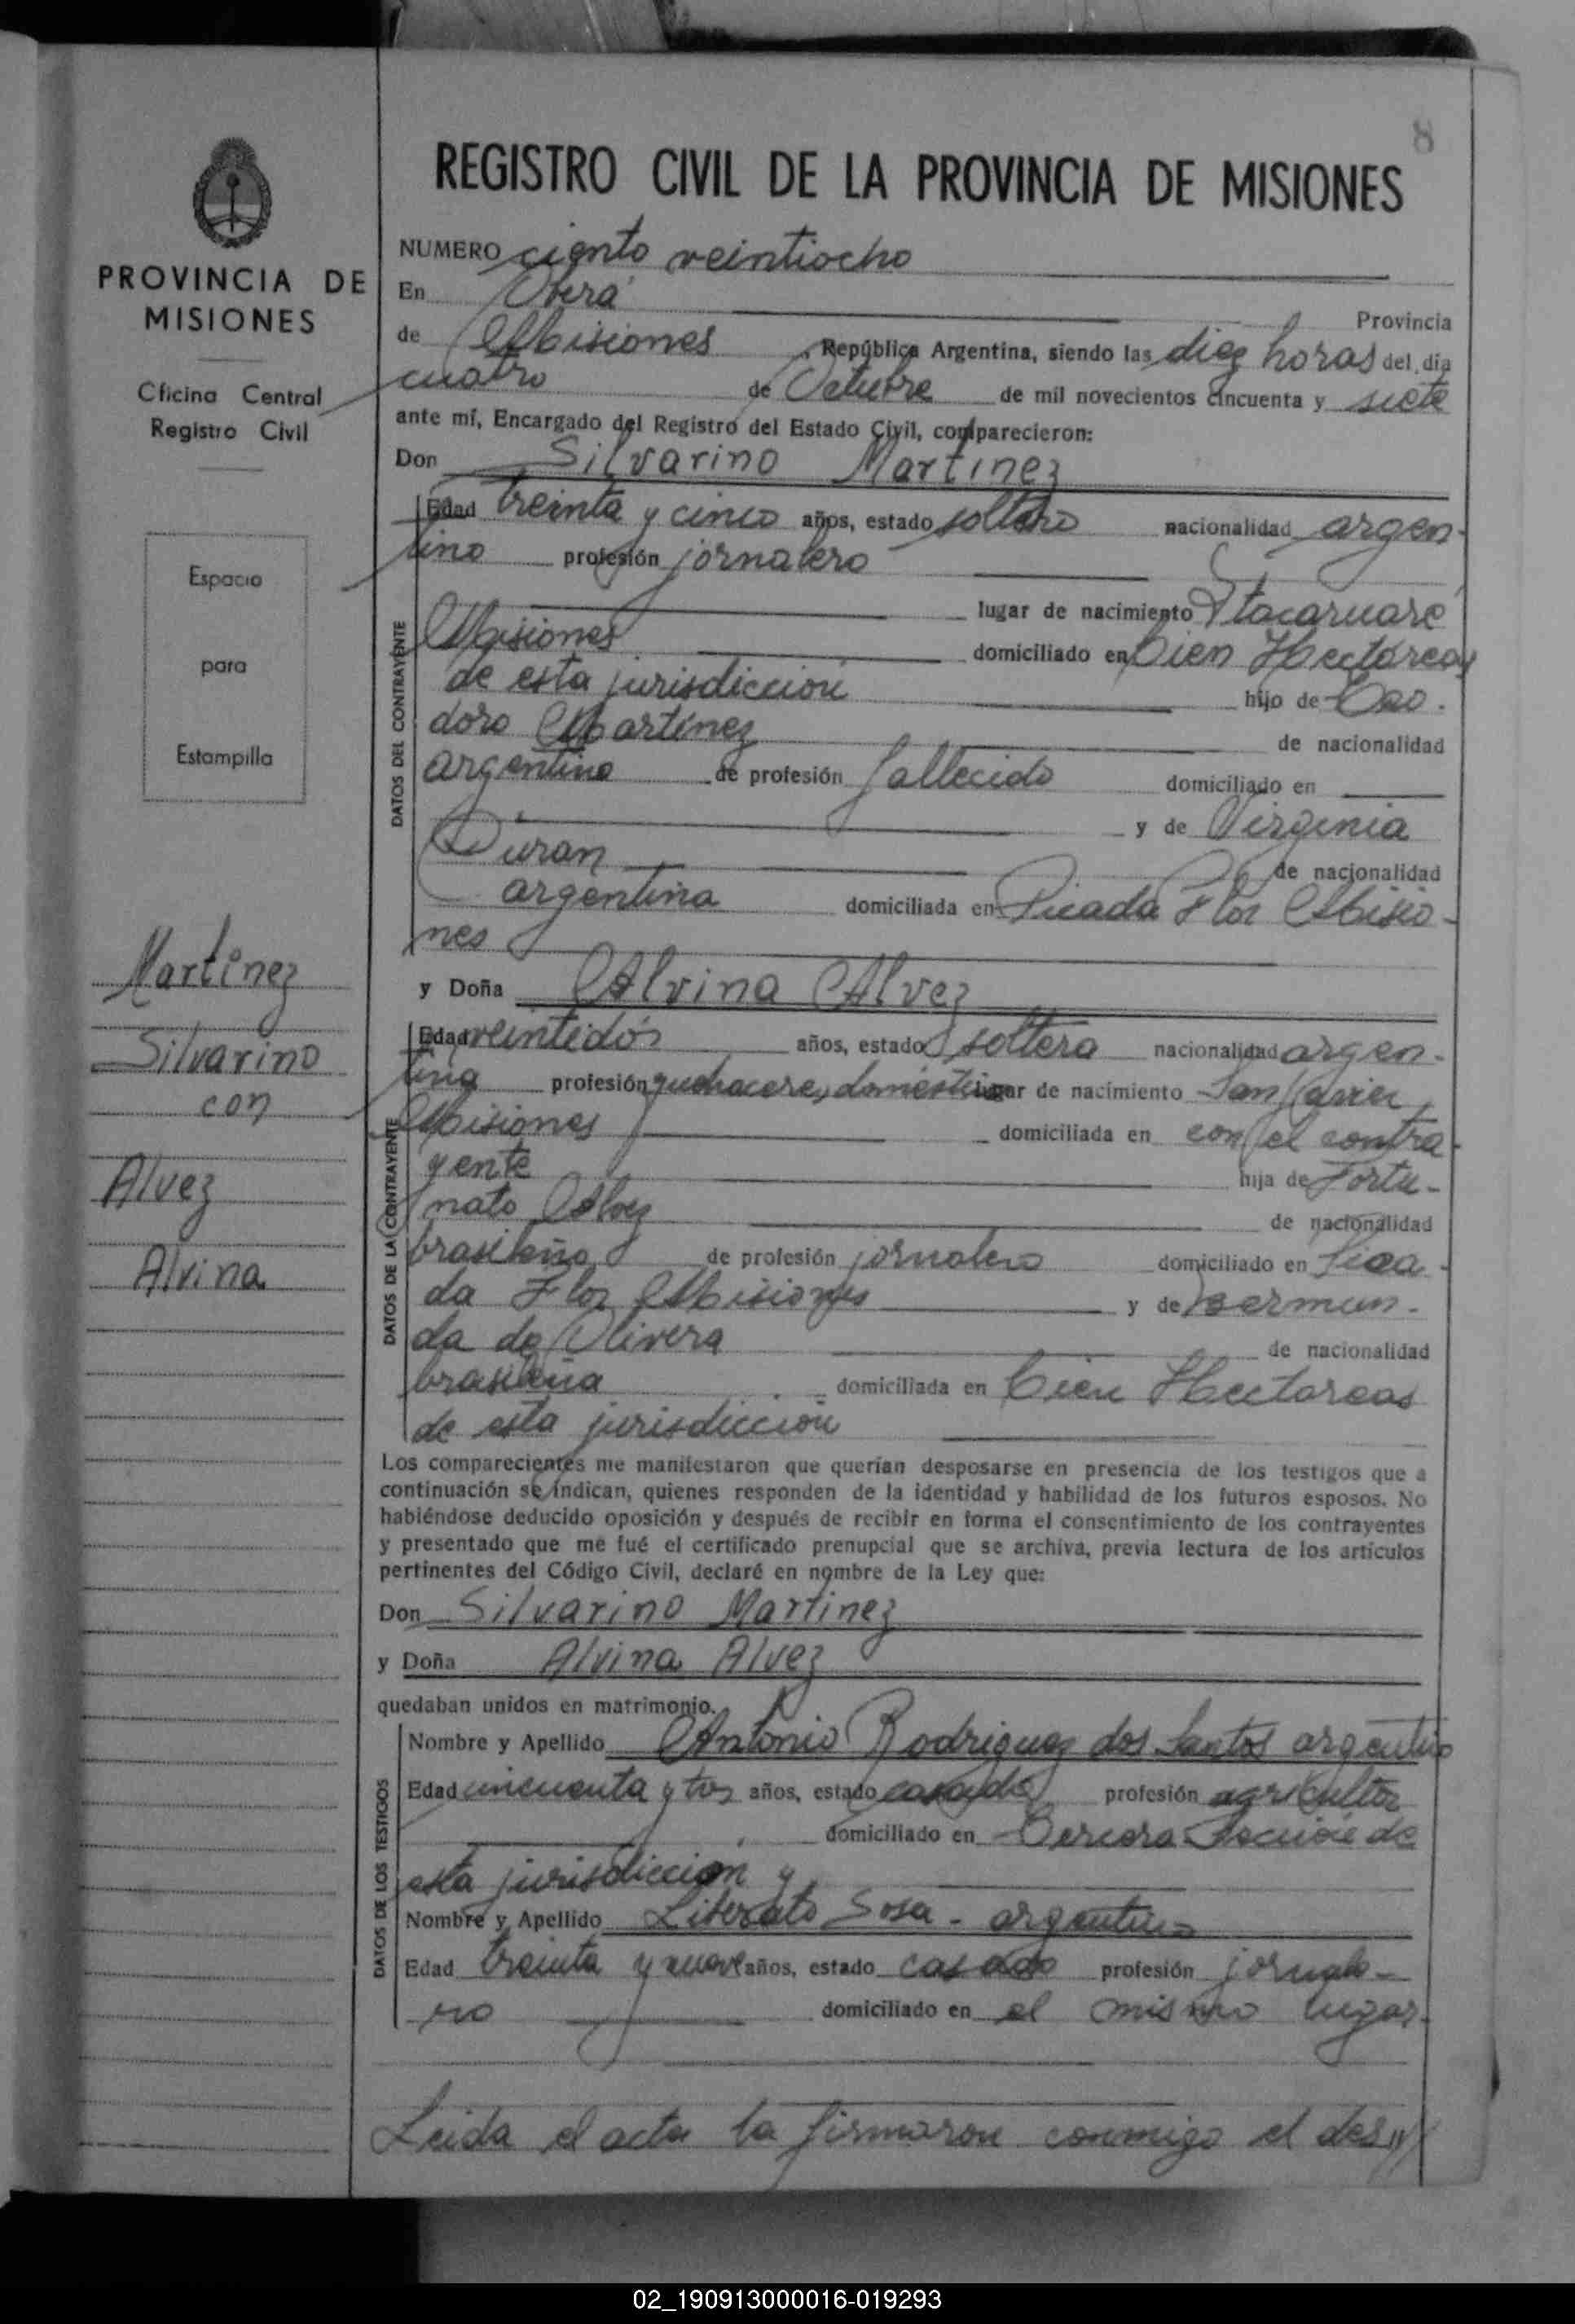 8
REGISTRO CIVIL DE LA PROVINCIA DE MISIONES
PROVINCIA DE
MISIONES
Oficina Central
Registro Civil
Espacio
para
Estampilla
Martinez
Silvarino
con
Alvez
Alvina
NUMERO ciento veintiocho
En Oberá Provincia
de Misiones, República Argentina, siendo las diez horas del día
cuatro de Octubre de mil novecientos cincuenta y siete
ante mí, Encargado del Registro del Estado Civil, comparecieron:
Don Silvarino Martinez
DATOS DEL CONTRAYENTE
Edad treinta y cinco años, estado soltero nacionalidad argen-
tino profesión jornalero
lugar de nacimiento Itacaruaré
Misiones domiciliado en Cien Hectáreas
de esta jurisdicción hijo de
doro Martinez de nacionalidad
argentino de profesión fallecido domiciliado en
y de Virginia
Duran de nacionalidad
argentina domiciliada en Picada Flor Misio-
nes
y Doña Alvina Alvez
DATOS DE LA CONTRAYENTE
Edad veintidós años, estado soltera nacionalidad argen-
tina profesión quehaceres domésticos lugar de nacimiento San Javier
Misiones domiciliada en con el contra-
yente hija de Fortu-
nato Alvez de nacionalidad
brasileña de profesión jornalero domiciliado en Pica-
da Flor Misiones y de Germun-
da de Olivera de nacionalidad
brasileña domiciliada en Cien Hectareas
de esta jurisdicción
Los comparecientes me manifestaron que querían desposarse en presencia de los testigos que a
continuación se indican, quienes responden de la identidad y habilidad de los futuros esposos. No
habiéndose deducido oposición y después de recibir en forma el consentimiento de los contrayentes
y presentado que me fué el certificado prenupcial que se archiva, previa lectura de los artículos
pertinentes del Código Civil, declaré en nombre de la Ley que:
Don Silvarino Martinez
y Doña Alvina Alvez
quedaban unidos en matrimonio.
DATOS DE LOS TESTIGOS
Nombre y Apellido Antonio Rodriguez dos Santos argentino
Edad cincuenta y tres años, estado casado profesión agricultor
domiciliado en Tercera Sección de
esta jurisdicción y
Nombre y Apellido Liberato Sosa - argentino
Edad treinta y nueve años, estado casado profesión jornale-
ro domiciliado en el mismo lugar.
Leida el acta la firmaron conmigo el des//
02_190913000016-019293